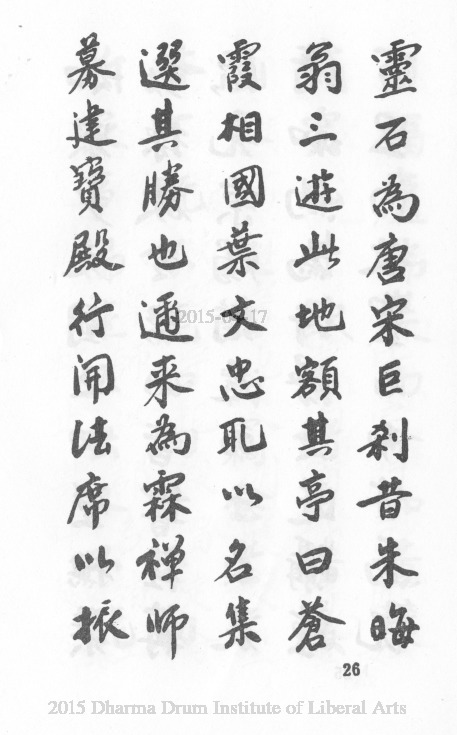 靈石為唐宋巨剎昔朱晦
翁三遊此地額其亭曰蒼
霞相國葉文忠取以名集
選其勝也邇来為霖禅師
募建寶殿行開法席以振
26
2015-05-17
2015 Dharma Drum Institute of Liberal Arts